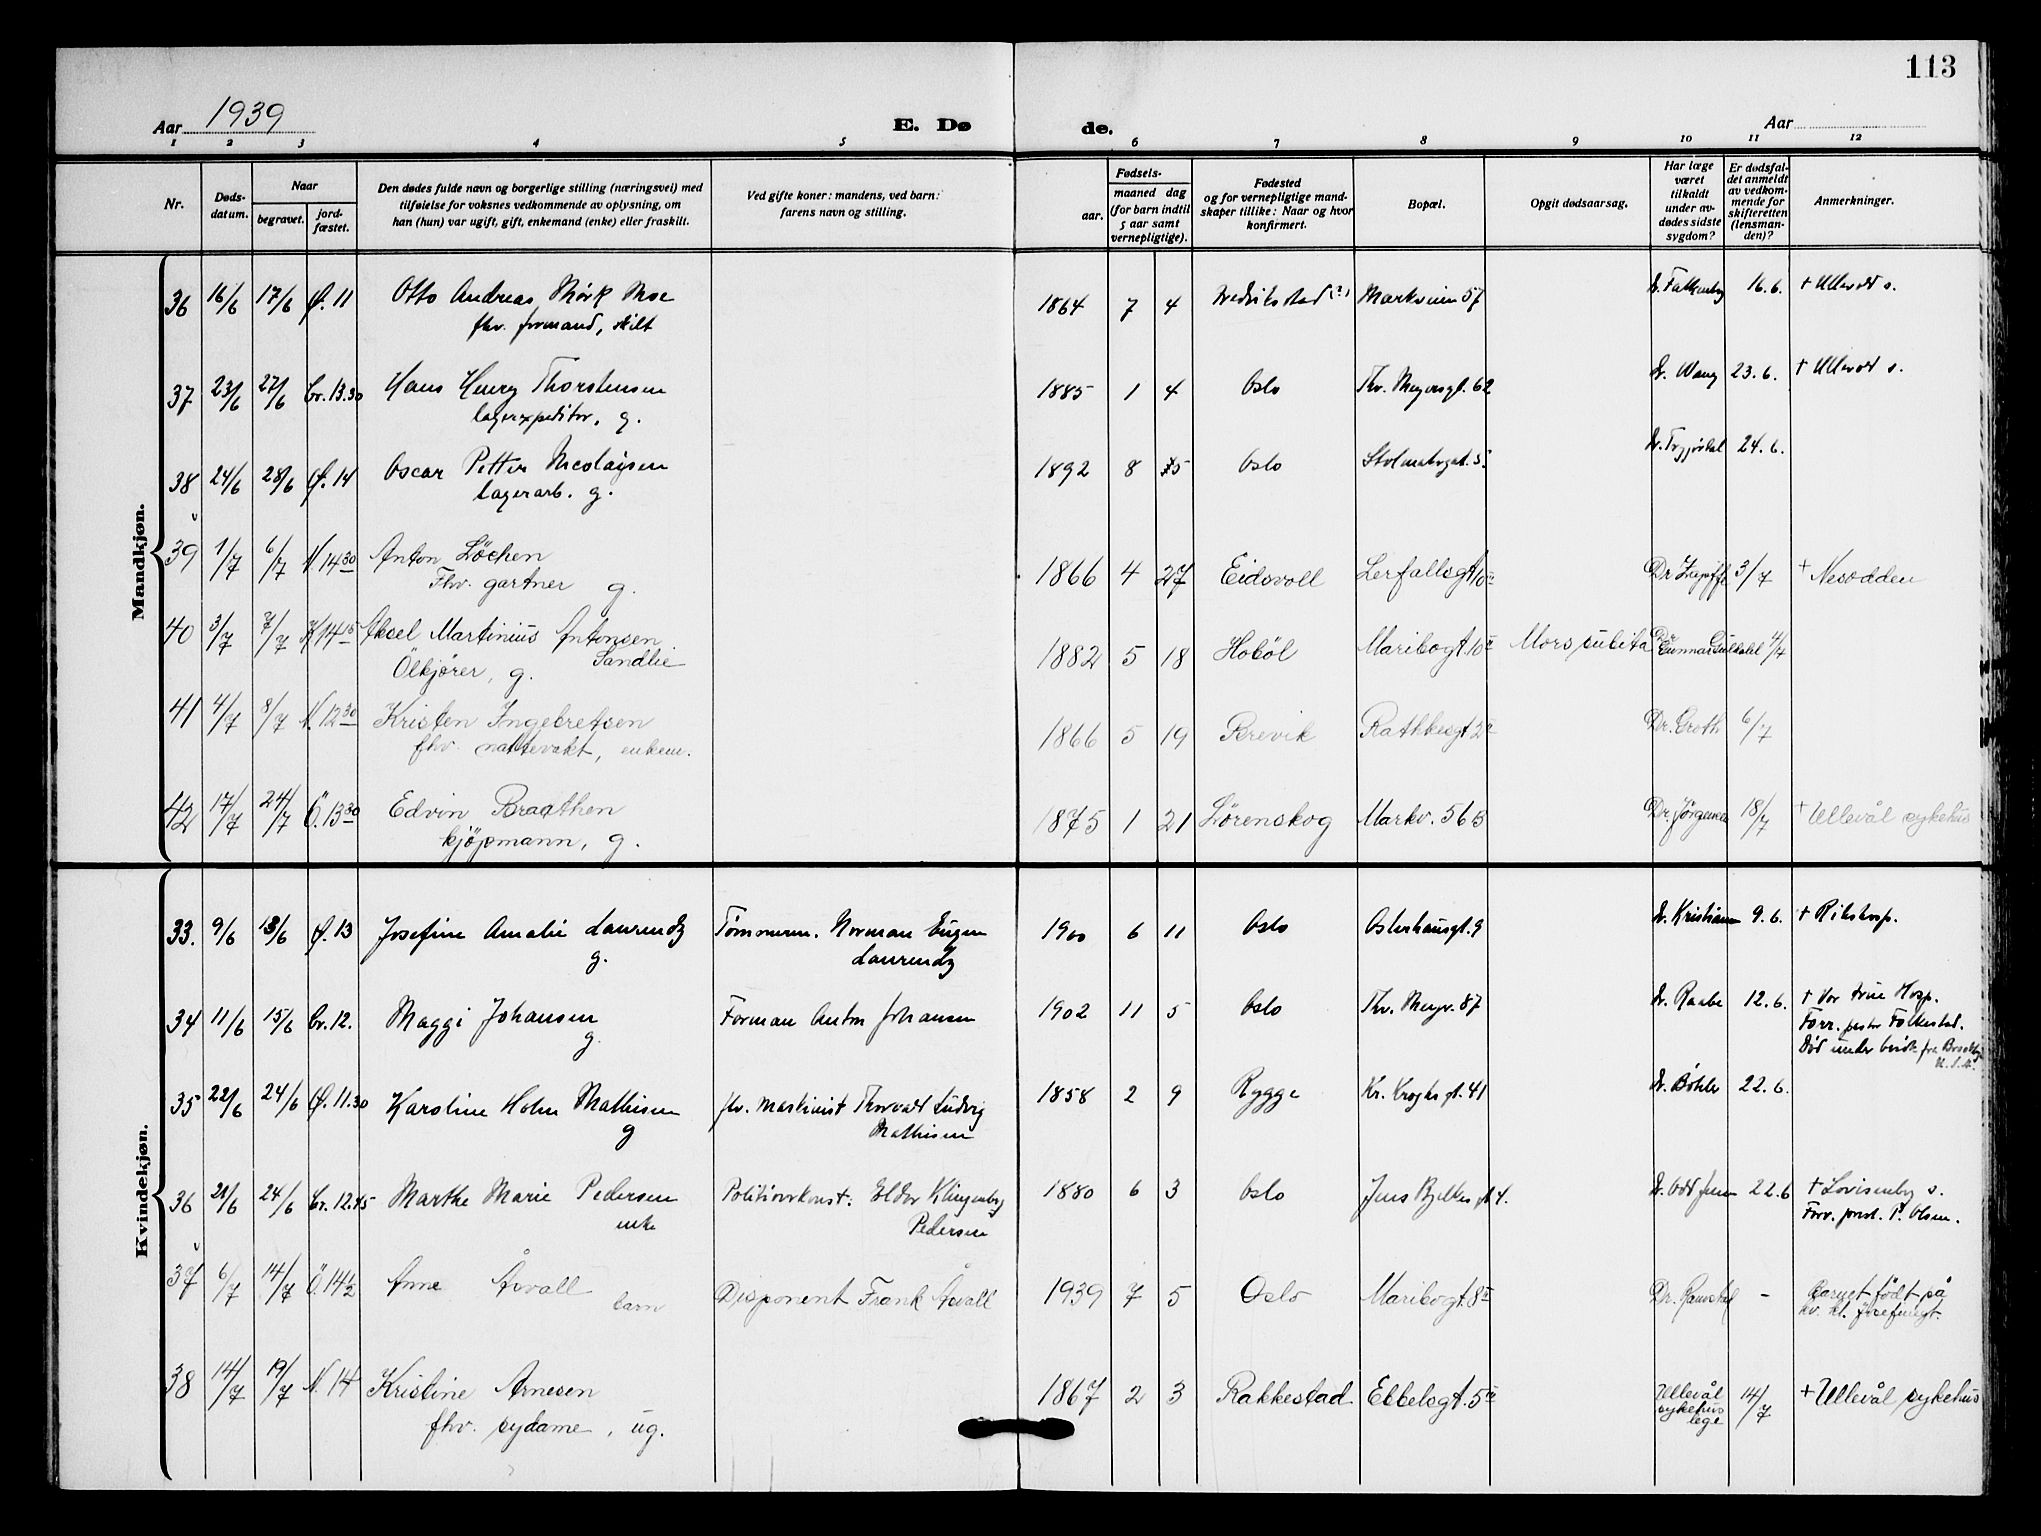 113
Aar 1939
E. Dø de.
Aar
1 2 3 4 5 6 7 8 9 10 11 12
Nr.
Døds-
datum.
Naar
begravet.
jord-
fæstet.
Den dødes fulde navn og borgerlige stilling (næringsvei) med
tilføielse for voksnes vedkommende av oplysning, om
han (hun) var ugift, gift, enkemand (enke) eller fraskilt.
Ved gifte koner: mandens, ved barn:
farens navn og stilling.
Fødsels-
aar.
maaned dag
(for barn indtil
5 aar samt
vernepligtige).
Fødested
og for vernepligtige mand-
skaper tillike: Naar og hvor
konfirmert.
Bopæl.
Opgit dødsaarsag.
Har læge
været
tilkaldt
under av-
dødes sidste
sygdom?
Er dødsfal-
det anmeldt
av vedkom-
mende for
skifteretten
(lensman-
den)?
Anmerkninger.
Mandkjøn.
36 16/6 17/6 Ø. 11 Otto Andreas Mørk Moe 1864 7 4 Fredrikstad (?) Markveien 57 Dr. Falkenberg 16.6. + Ullevål s.
fhv. formand, skilt
37 23/6 27/6 Cr. 13.30 Hans Henry Thorstensen 1885 1 4 Oslo Thv. Meyersgt. 62 Dr. Wang 23.6. + Ullevål s.
lagerexpeditør, g.
38 24/6 28/6 Ø. 14 Oscar Petter Nicolaysen 1892 8 Oslo 24.6.
lagerarb. g.
39 1/7 6/7 N. 14 30 Anton Löchen 1866 4 27 Eidsvoll Dr 3/7 + Nesodden
Fhv. gartner g.
40 3/7 7/7 14 15 Aksel Martinius Antonsen 1882 5 18 Hobøl Maribogt. 10 II Mors subita Dr Gunnar 4/7
Sandlie
Ölkjører, g.
41 4/7 8/7 N. 12 30 Kristen Ingebretsen 1866 5 19 Brevik Rathkesgt. Dr. Groth 6/7
fhv. nattevakt, enkem.
42 17/7 24/7 Ö. 13 30 Edvin Braathen 1875 1 21 Lørenskog Markv. 56 B Dr. Jörgensen 18/7 + Ullevål sykehus
kjöpmann, g.
Kvindekjøn.
33. 9/6 13/6 Ø. 13 Josefine Amalie Laurendz Tømmerm. Norman Eugen 1900 6 11 Oslo Osterhausgt. 9 Dr. Kristiansen 9.6. + Rikshosp.
g. Laurendz
34 11/6 15/6 Cr. 12. Maggi Johansen Forman Anton Johansen 1902 11 5 Oslo Thv. Meyer. 87 Dr. Raabe 12.6. + Vor Frue Hosp.
g. Forr. pastor Folkestad.
Død under
35 22/6 24/6 Ø. 11.30 Karoline Holm Mathisen fhv. maskinist Thorvald Ludvig 1858 2 9 Rygge Kr. Kroghs gt. 41 Dr. Bøhler 22.6.
g Mathisen
36 21/6 24/6 Cr. 12.45 Marthe Marie Pedersen Politioverkonst. Eldor Klingenberg 1880 6 3 Oslo Jens Bjelkes gt. 4. Dr. Odd Jensen 22.6 + Lovisenberg s.
enke Pedersen Forr. prest. P. Olsen.
37 6/7 14/7 Ö. 14½ Anne Åsvall Disponent Frank Åsvall 1939 7 5 Oslo Maribogt. 8 II Dr. Ramstad - Barnet født på
barn kv. kl. Josefinegt.
38 14/7 19/7 N. 14 Kristine Arnesen 1867 2 3 Rakkestad Ebbelsgt. 5 Ullevål 14/7 + Ullevål sykehus
sykehus
lege
fhv. sydame, ug.